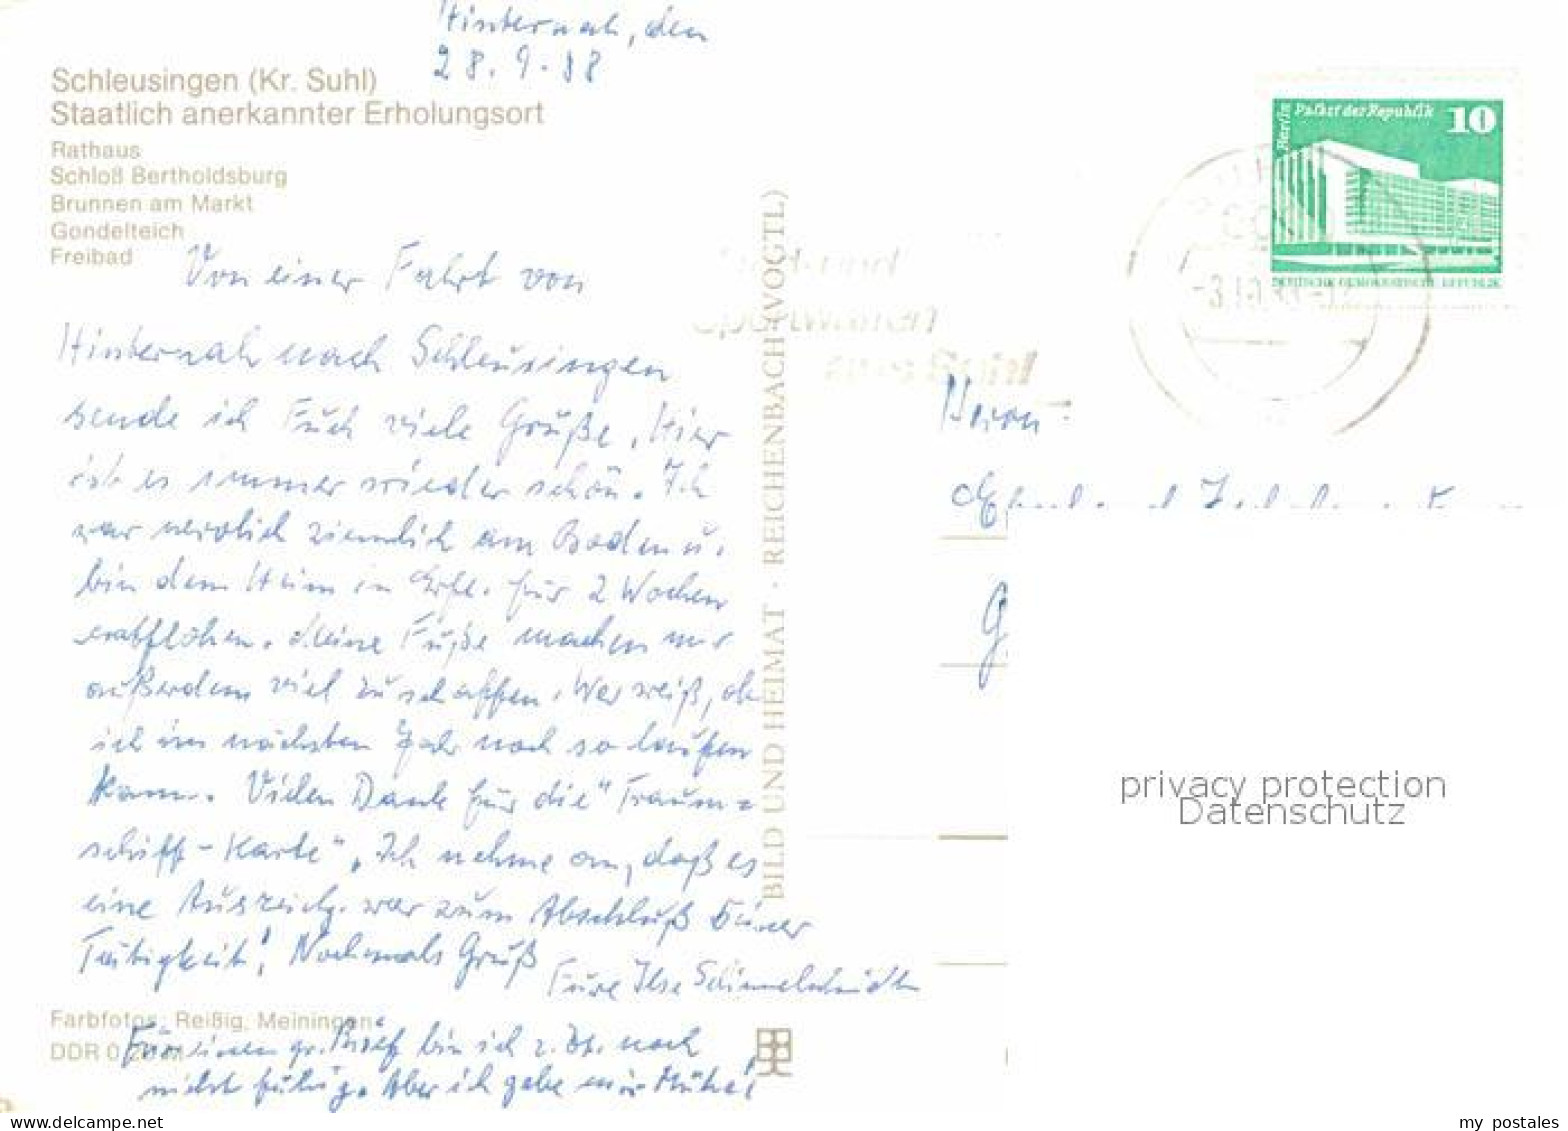 Hinternah, den
28.9.88
Schleusingen (Kr. Suhl)
Staatlich anerkannter Erholungsort
Rathaus
Schloß Bertholdsburg
Brunnen am Markt
Gondelteich
Freibad
Von einer Fahrt von
Hinternah nach Schleusingen
sende ich Euch viele Grüße. Hier
ist es immer wieder schön. Ich
war nervlich ziemlich am Boden u.
bin dem Heim in Erf. für 2 Wochen
entflohen. Meine Füße machen mir
außerdem viel zu schaffen. Wer weiß, ob
ich im nächsten Jahr noch so laufen
kann. Vielen Dank für die "Traum=
schiff-Karte". Ich nehme an, daß es
eine Auszeichg. war zum Abschluß Eurer
Tätigkeit! Nochmals Gruß
Eure Ilse Schimmelschmidt
Farbfotos: Reißig, Meiningen
DDR 0
Für einen gr. Brief bin ich z. Zt. noch
nicht fähig. Aber ich gebe mir Mühe!
BILD UND HEIMAT · REICHENBACH (VOGTL)
Berlin Palast der Republik 10
DEUTSCHE DEMOKRATISCHE REPUBLIK
Sportwaffen
aus Suhl
-3.10.88
Herrn:
G
privacy protection
Datenschutz
my postales